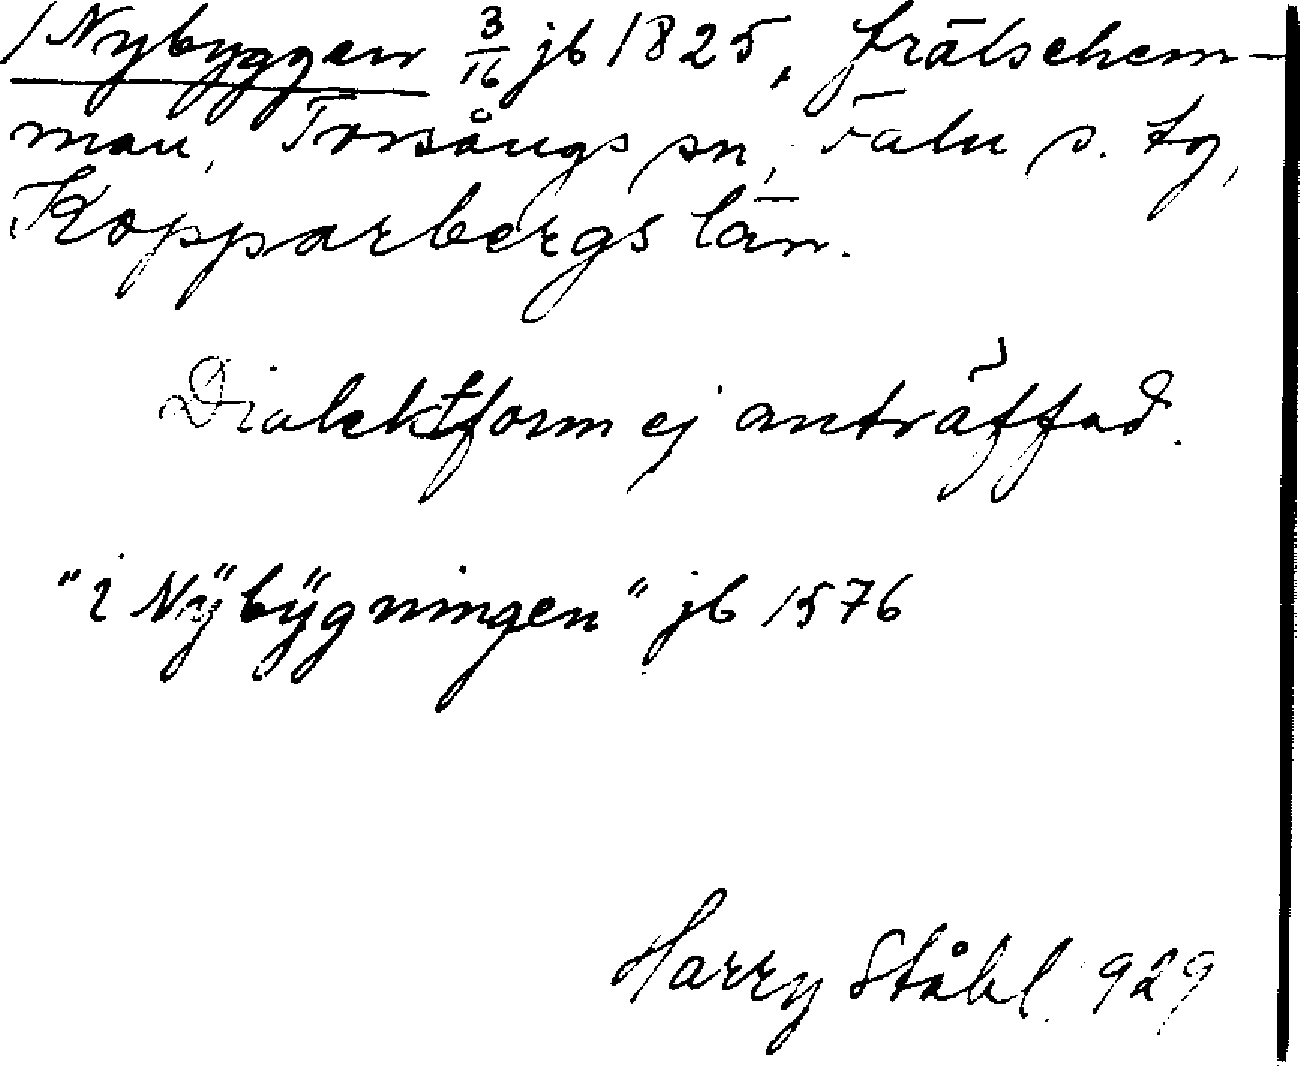 Nybyggen 3/16 jb 1825, frälsehem-
man, Torsångs sn, Falu s. tg,
Kopparbergs län.
Dialektform ej anträffad.
"i Nÿbÿgningen" jb 1576
Harry Ståhl 929